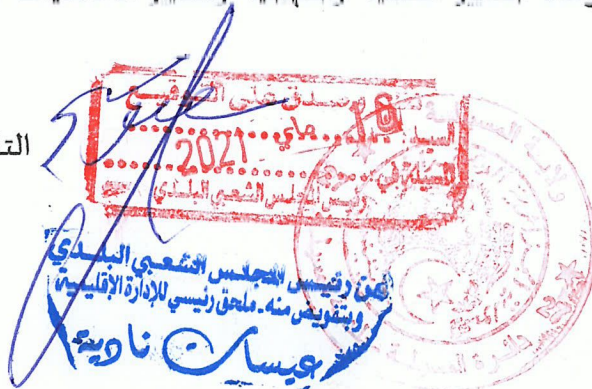 التـ
صدق على التوقيع
السيد
16 ماي 2021
المسيلة في
رئيس المجلس الشعبي البلدي
عن رئيس المجلس الشعبي البلدي
وبتفويض منه. ملحق رئيسي للإدارة الإقليمية
عيسات نادية
ولاية المسيلة
دائرة المسيلة